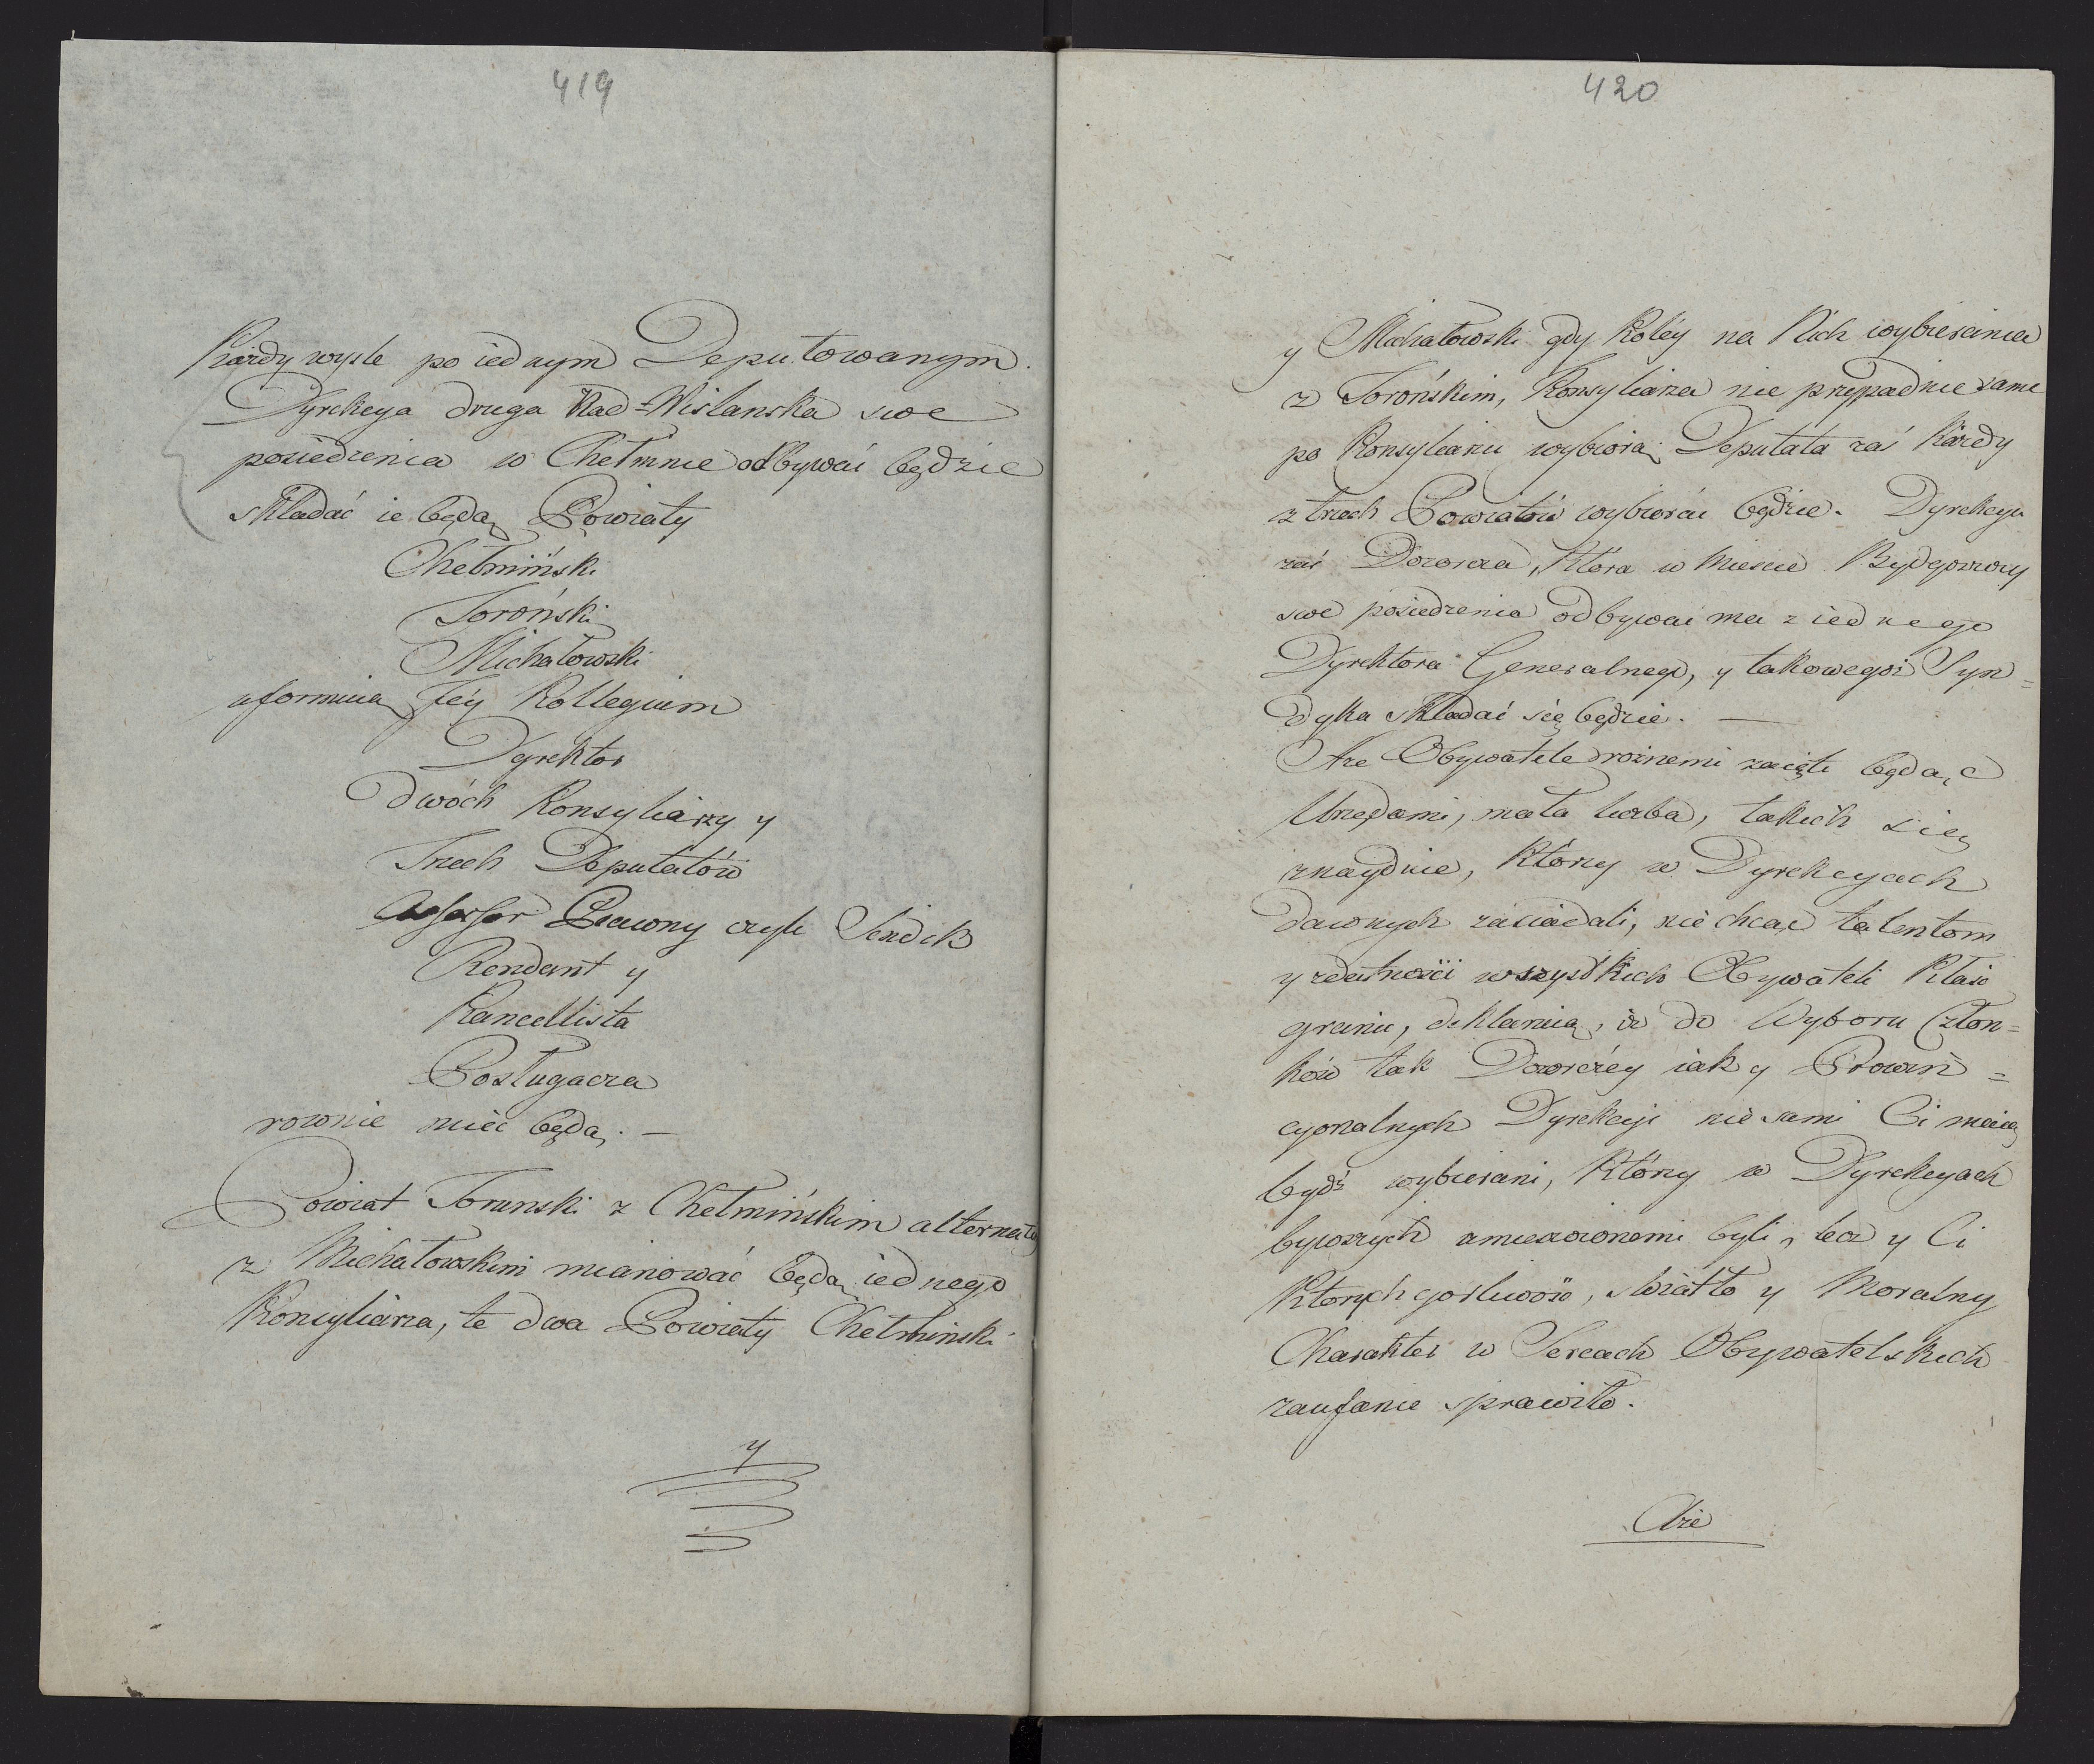 419
Kazdy wysle po iednym Deputowanym.
Dyrekcya druga Nad=Wislanska swe
posiedzenia w Chełmnie odbywać będzie
składać ie będą Powiaty
Chełmiński
Toroński
Michałowski
uformuią Jey Kollegium
Dyrektor
dwóch Konsyliarzy y
Trzech Deputatów
Assessor Prawny czyli Sendik
Rendant y
Kancellista
Posługacza
rownie mieć będą. —
Powiat Torunski z Chełmińskim alternatą
z Michałowskim mianować będą iednego
Konsyliarza, te dwa Powiaty Chełminski
y
420
y Michałowski gdy koley na Nich wybierania
z Torońskim, Konsyliarza nie przypadnie same
po Konsyliarzu wybiorą; Deputata zaś każdy
z trzech Powiatów wybierać będzie. Dyrekcya
zaś Dozorcza, która w Miescie Bydgoszczy
swe posiedzenia odbywać ma z iednego
Dyrektora Generalnego, y takowegoż Syn=
dyka składać się będzie. —
Aże Obywatele roznemi zaięte będąc
Urzędami, mała liczba, takich się
znayduie, którzy w Dyrekcyach
dawnych zasiadali, nie chcąc talentom
y zdatności wszystkich Obywateli klaść
granic, deklaruią, iż do Wyboru Człon=
ków tak Dozorczey iak y Prowin=
cyonalnych Dyrekcyi nie sami Ci maią
bydź wybierani, którzy w Dyrekcyach
bywszych umieszczonemi byli, lecz y Ci
Których gorliwość, swiatło y Moralny
Charakter w Sercach Obywatelskich
zaufanie sprawiło.
Aże